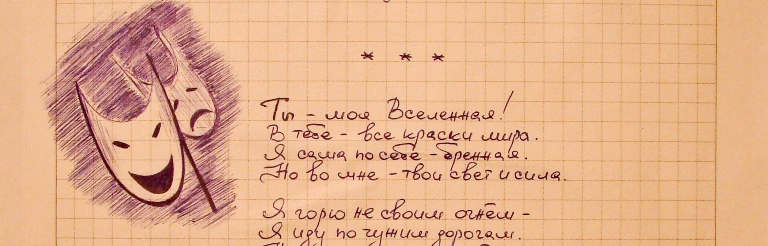 * * *
Ты - моя Вселенная!
В тебе - все краски мира.
Я сама по себе - бренная.
Но во мне - твои свет и сила.
Я горю не своим огнём -
Я иду по чужим дорогам.